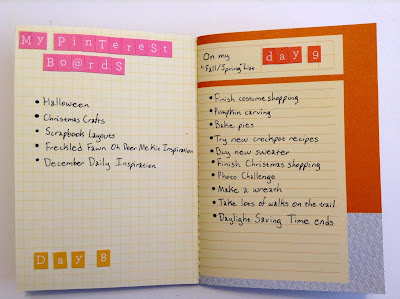 My PinTereSt
Bo@rdS
• Halloween
• Christmas Crafts
• Scrapbook Layouts
• Freckled Fawn Oh Deer Me Kit Inspiration
• December Daily Inspiration
Day 8
On my
"Fall/Spring" List
day 9
• Finish costume shopping
• Pumpkin carving
• Bake pies
• Try new crockpot recipes
• Buy new sweater
• Finish Christmas shopping
• Photo Challenge
• Make a wreath
• Take lots of walks on the trail
• Daylight Saving Time ends